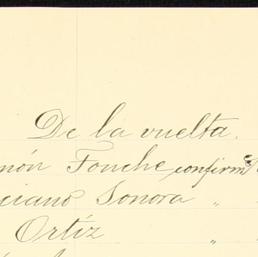 De la vuelta.
món Fonche confirm
ciano Sonora "
Ortíz "